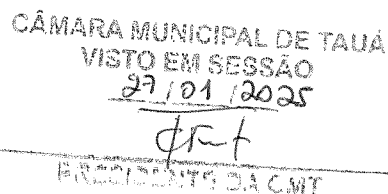 CÂMARA MUNICIPAL DE TAUÁ
VISTO EM SESSÃO
27/01/2025
PRESIDENTE DA CMT